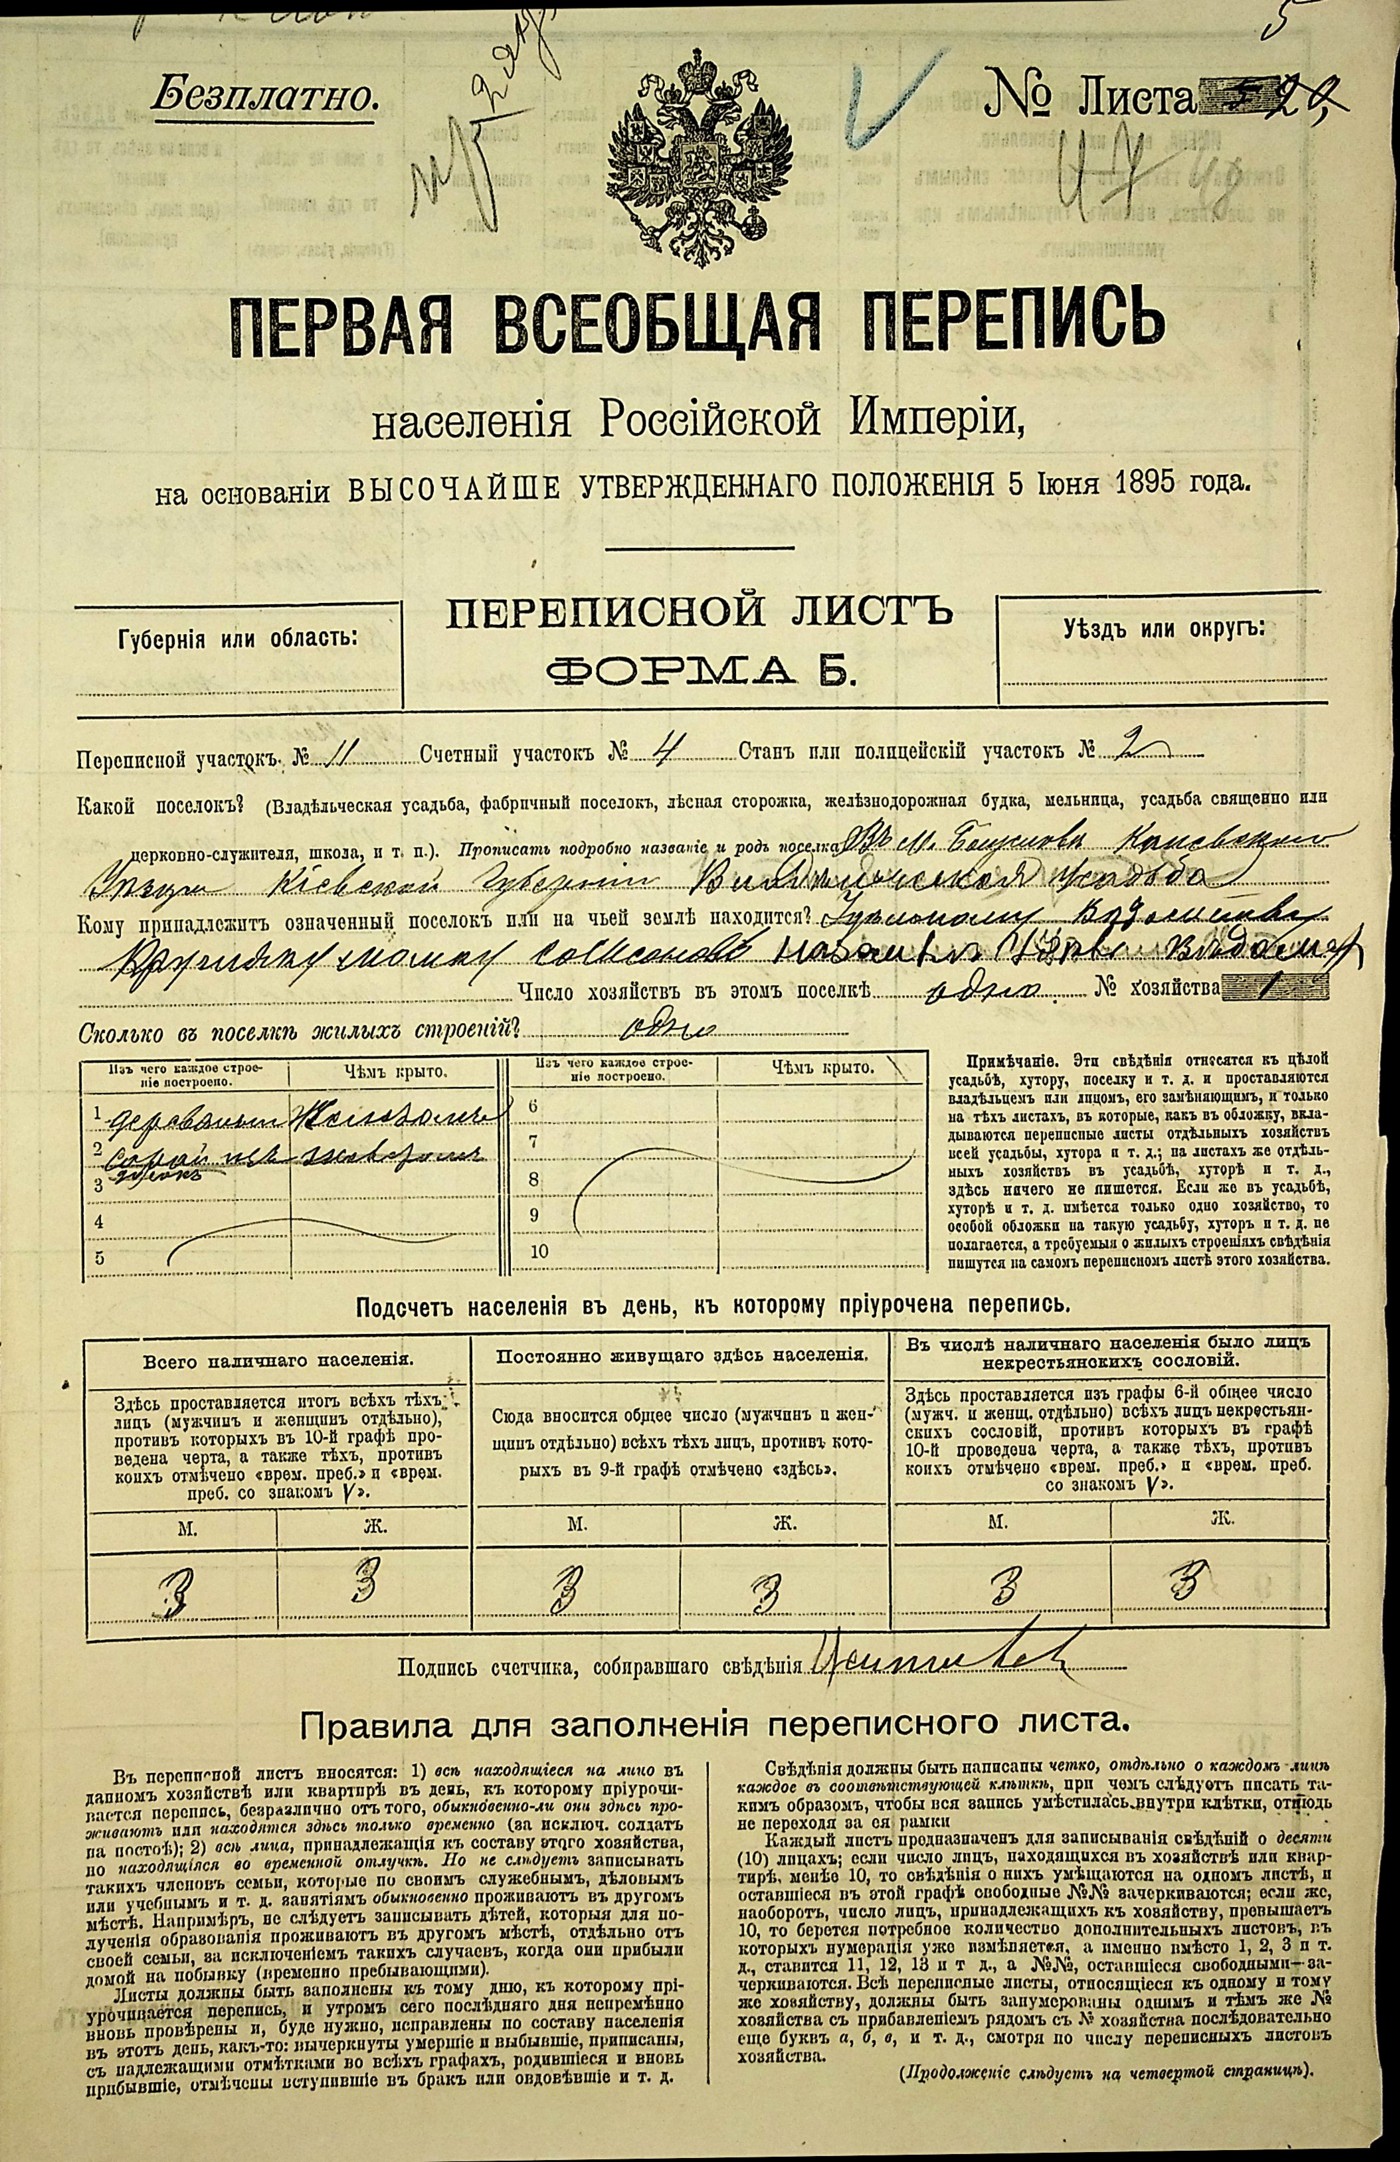 5
Безплатно.
№ Листа
47 48
ПЕРВАЯ ВСЕОБЩАЯ ПЕРЕПИСЬ
населенія Россійской Имперіи,
на основаніи ВЫСОЧАЙШЕ УТВЕРЖДЕННАГО ПОЛОЖЕНІЯ 5 Іюня 1895 года.
ПЕРЕПИСНОЙ ЛИСТЪ
ФОРМА Б.
Губернія или область:
Уѣздъ или округъ:
Переписной участокъ № 11 Счетный участокъ № 4 Станъ или полицейскій участокъ № 2
Какой поселокъ? (Владѣльческая усадьба, фабричный поселокъ, лѣсная сторожка, желѣзнодорожная будка, мельница, усадьба священно или
церковно-служителя, школа, и т. п.). Прописать подробно названіе и родъ поселка Въ м. Богуслови Каневскаго
Уѣзда Кіевской Губерніи Владѣльческая усадьба
Кому принадлежитъ означенный поселокъ или на чьей землѣ находится? Удѣльному Вѣдомству
Число хозяйствъ въ этомъ поселкѣ одно № хозяйства 1
Сколько въ поселкѣ жилыхъ строеній? одно
Изъ чего каждое строе-
ніе построено.
Чѣмъ крыто.
Изъ чего каждое строе-
ніе построено.
Чѣмъ крыто.
1
2
3
4
5
6
7
8
9
10
Примѣчаніе. Эти свѣдѣнія относятся къ цѣлой
усадьбѣ, хутору, поселку и т. д. и проставляются
владѣльцемъ или лицомъ, его замѣняющимъ, и только
на тѣхъ листахъ, въ которые, какъ въ обложку, вкла-
дываются переписные листы отдѣльныхъ хозяйствъ
всей усадьбы, хутора и т. д.; на листахъ же отдѣль-
ныхъ хозяйствъ въ усадьбѣ, хуторѣ и т. д.,
здѣсь ничего не пишется. Если же въ усадьбѣ,
хуторѣ и т. д. имѣется только одно хозяйство, то
особой обложки на такую усадьбу, хуторъ и т. д. не
полагается, а требуемыя о жилыхъ строеніяхъ свѣдѣнія
пишутся на самомъ переписномъ листѣ этого хозяйства.
Подсчетъ населенія въ день, къ которому пріурочена перепись.
Всего наличнаго населенія.
Здѣсь проставляется итогъ всѣхъ тѣхъ
лицъ (мужчинъ и женщинъ отдѣльно),
противъ которыхъ въ 10-й графѣ про-
ведена черта, а также тѣхъ, противъ
коихъ отмѣчено «врем. преб.» и «врем.
преб. со знакомъ V».
М. Ж.
3 3
Постоянно живущаго здѣсь населенія.
Сюда вносится общее число (мужчинъ и жен-
щинъ отдѣльно) всѣхъ тѣхъ лицъ, противъ кото-
рыхъ въ 9-й графѣ отмѣчено «здѣсь».
М. Ж.
3 3
Въ числѣ наличнаго населенія было лицъ
некрестьянскихъ сословій.
Здѣсь проставляется изъ графы 6-й общее число
(мужч. и женщ. отдѣльно) всѣхъ лицъ некрестьян-
скихъ сословій, противъ которыхъ въ графѣ
10-й проведена черта, а также тѣхъ, противъ
коихъ отмѣчено «врем. преб.» и «врем. преб.
со знакомъ V».
М. Ж.
3 3
Подпись счетчика, собиравшаго свѣдѣнія
Правила для заполненія переписного листа.
Въ переписной листъ вносятся: 1) всѣ находящіеся на лицо въ
данномъ хозяйствѣ или квартирѣ въ день, къ которому пріурочи-
вается перепись, безразлично отъ того, обыкновенно-ли они здѣсь про-
живаютъ или находятся здѣсь только временно (за исключ. солдатъ
на постоѣ); 2) всѣ лица, принадлежащія къ составу этого хозяйства,
но находящіяся во временной отлучкѣ. Но не слѣдуетъ записывать
такихъ членовъ семьи, которые по своимъ служебнымъ, дѣловымъ
или учебнымъ и т. д. занятіямъ обыкновенно проживаютъ въ другомъ
мѣстѣ. Напримѣръ, не слѣдуетъ записывать дѣтей, которыя для по-
лученія образованія проживаютъ въ другомъ мѣстѣ, отдѣльно отъ
своей семьи, за исключеніемъ такихъ случаевъ, когда они прибыли
домой на побывку (временно пребывающими).
Листы должны быть заполнены къ тому дню, къ которому прі-
урочивается перепись, и утромъ сего послѣдняго дня непремѣнно
вновь провѣрены и, буде нужно, исправлены по составу населенія
въ этотъ день, какъ-то: вычеркнуты умершіе и выбывшіе, приписаны,
съ надлежащими отмѣтками во всѣхъ графахъ, родившіеся и вновь
прибывшіе, отмѣчены вступившіе въ бракъ или овдовѣвшіе и т. д.
Свѣдѣнія должны быть написаны четко, отдѣльно о каждомъ лицѣ
каждое въ соотвѣтствующей клѣткѣ, при чемъ слѣдуетъ писать та-
кимъ образомъ, чтобы вся запись умѣстилась внутри клѣтки, отнюдь
не переходя за ея рамки
Каждый листъ предназначенъ для записыванія свѣдѣній о десяти
(10) лицахъ; если число лицъ, находящихся въ хозяйствѣ или квар-
тирѣ, менѣе 10, то свѣдѣнія о нихъ умѣщаются на одномъ листѣ, и
оставшіеся въ этой графѣ свободные №№ зачеркиваются; если же,
наоборотъ, число лицъ, принадлежащихъ къ хозяйству, превышаетъ
10, то берется потребное количество дополнительныхъ листовъ, въ
которыхъ нумерація уже измѣняется, а именно вмѣсто 1, 2, 3 и т.
д., ставится 11, 12, 13 и т д., а №№, оставшіеся свободными—за-
черкиваются. Всѣ переписные листы, относящіеся къ одному и тому
же хозяйству, должны быть занумерованы однимъ и тѣмъ же №
хозяйства съ прибавленіемъ рядомъ съ № хозяйства послѣдовательно
еще буквъ а, б, в, и т. д., смотря по числу переписныхъ листовъ
хозяйства.
(Продолженіе слѣдуетъ на четвертой страницѣ).